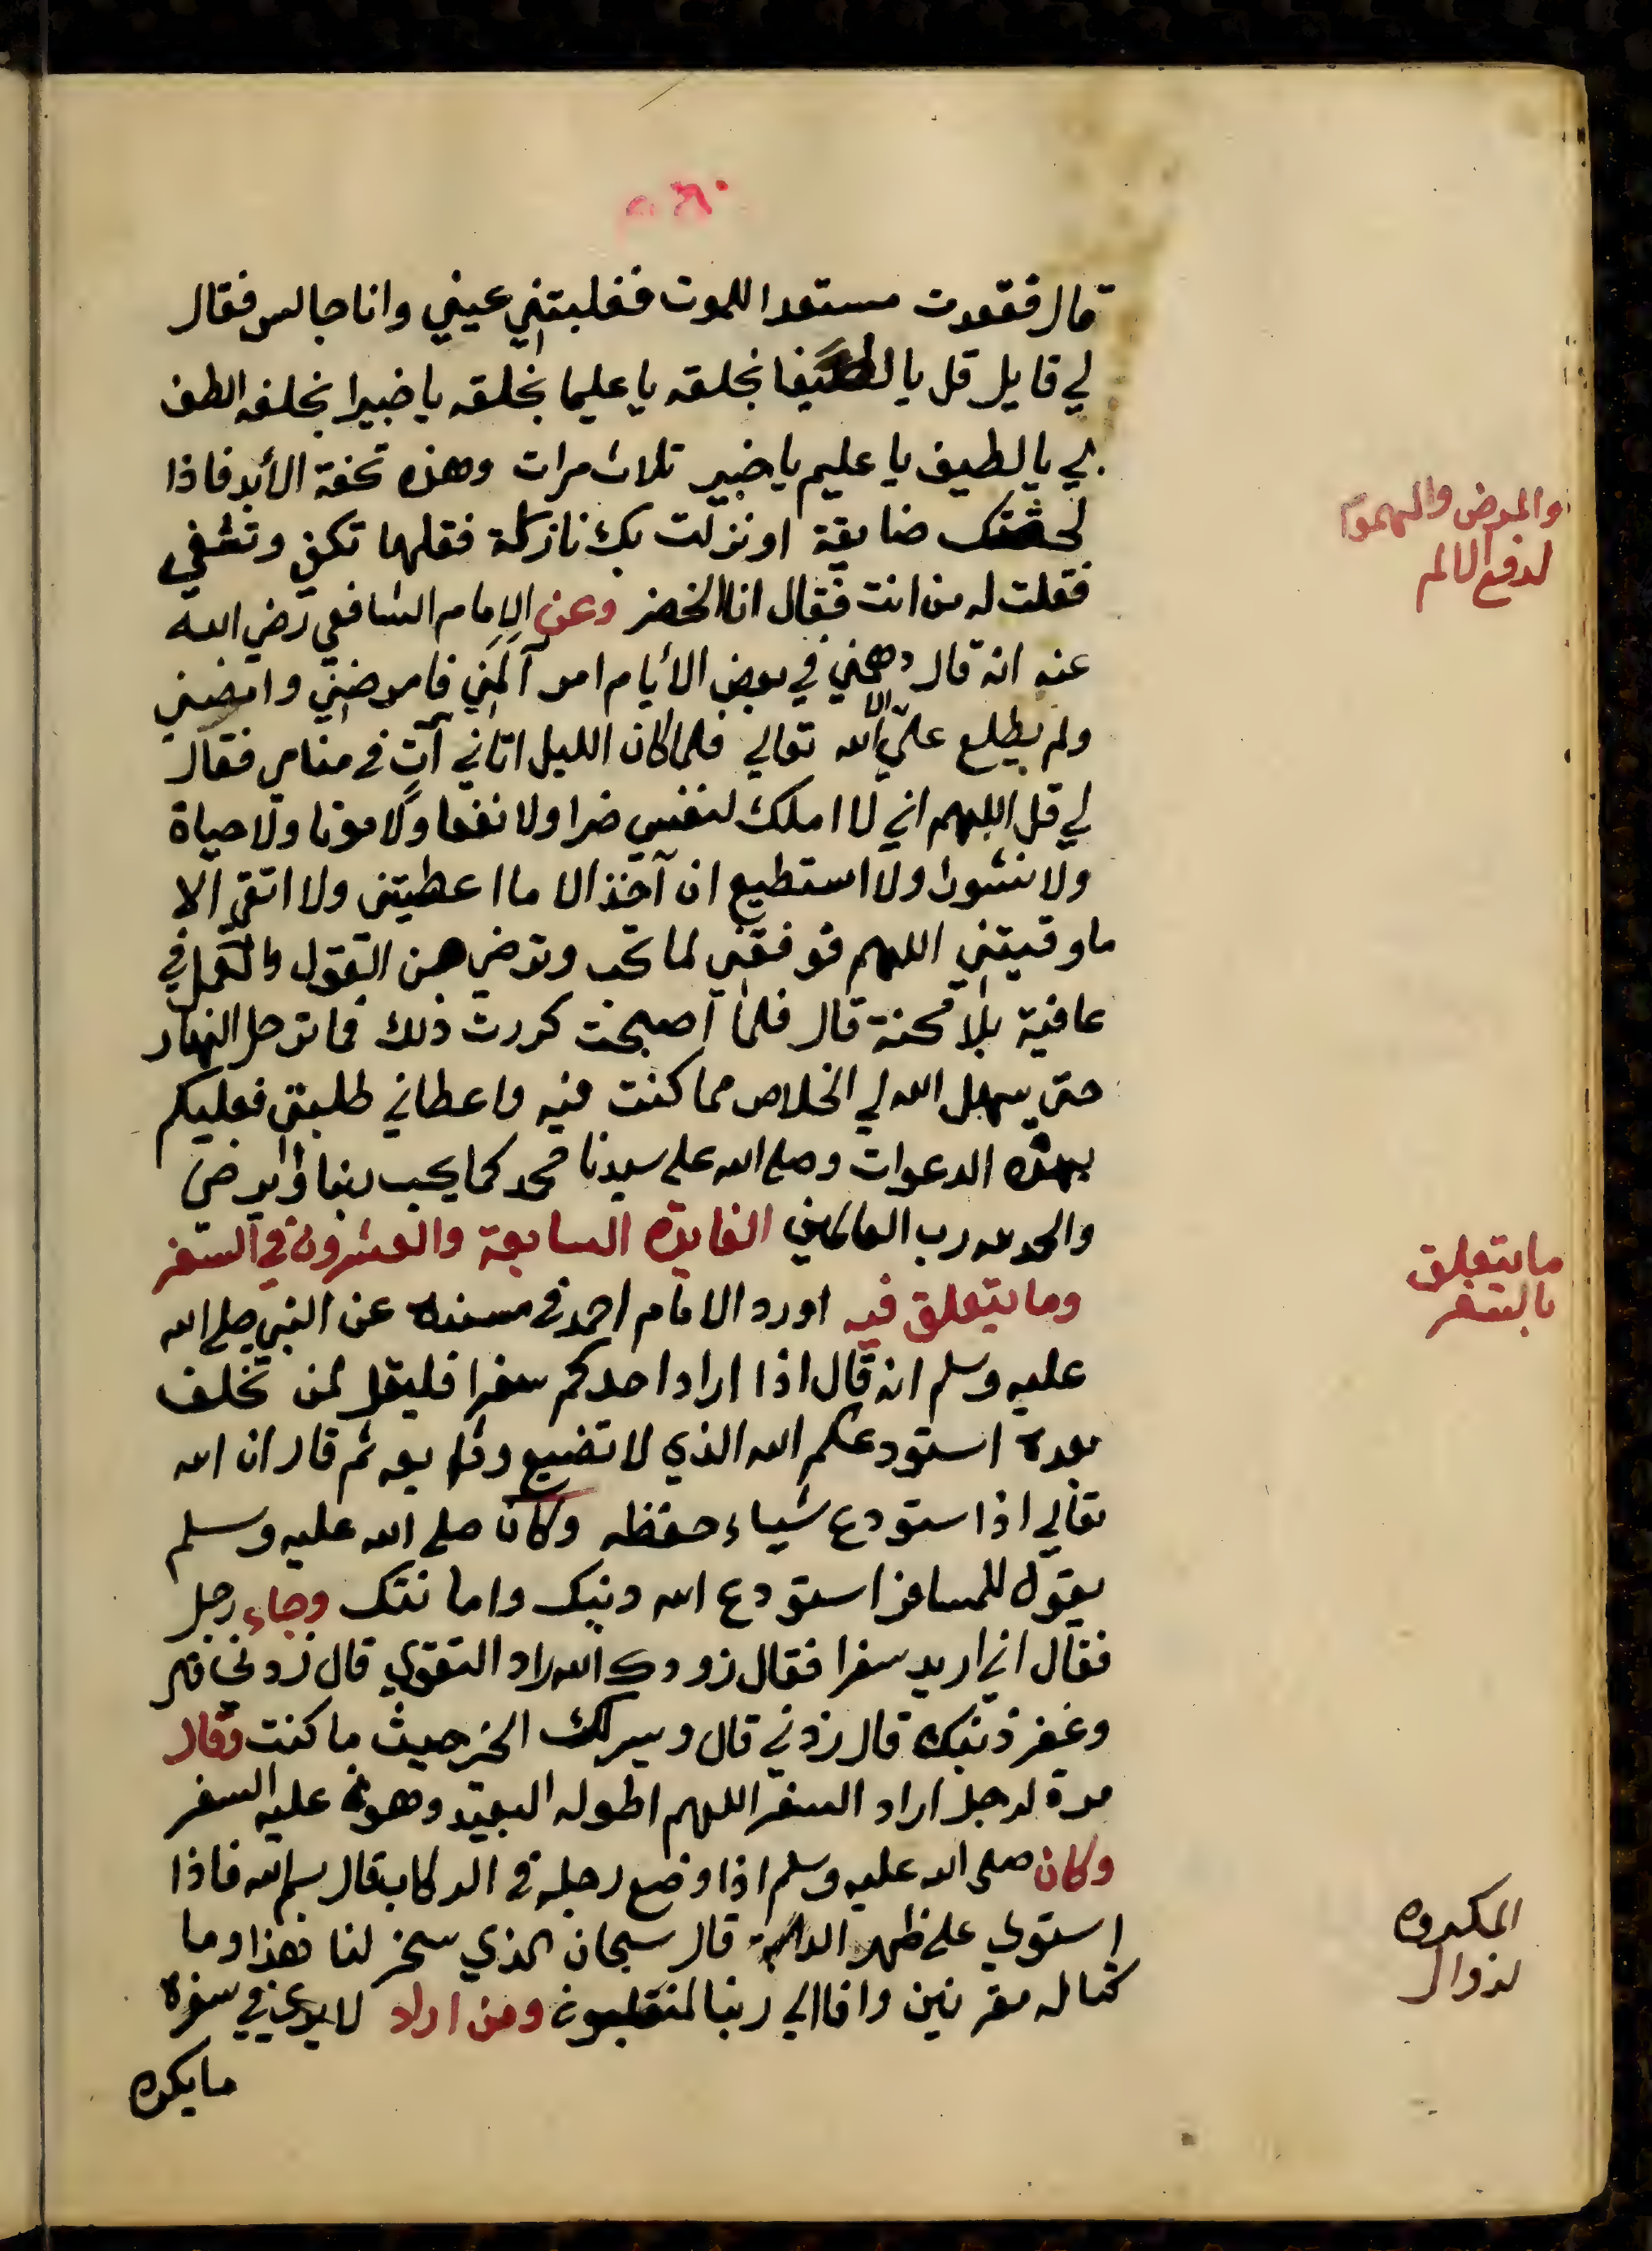 قال فقعدت مستعدا للموت فغلبتني عيني وانا جالس فقال
لي قايل قل يا لطيفا بخلقه يا عليما بخلقه يا خبيرا بخلقه الطف
بي يا لطيف يا عليم يا خبير ثلاث مرات وهذه تحفة الأبد فاذا
لحقتك ضايقة او نزلت بك نازلة فقلها تكفى وتشفى
فقلت له من انت فقال انا الخضر وعن الإمام الشافعي رضي الله
عنه انه قال دهمني في بعض الأيام امر آلمني فامرضني وامضني
ولم يطلع عليّ الا الله تعالي فلما كان الليل اتاني آتٍ في منامي فقال
لي قل اللهم اني لا املك لنفسي ضرا ولا نفعا ولا موتا ولا حياة
ولا نشورا ولا استطيع ان آخذ الا ما اعطيتني ولا اتقي الا
ما وقيتني اللهم فوفقني لما تحب وترضى من القول والعمل في
عافية بلا محنة قال فلما اصبحت كررت ذلك فما ترحل النهار
حتى سهل الله لي الخلاص مما كنت فيه واعطاني طلبتي فعليكم
بهذه الدعوات وصلى الله على سيدنا محمد كما يحب ربنا ويرضى
والحمد لله رب العالمين الفايدة السابعة والعشرون في السفر
وما يتعلق فيه اورد الامام احمد في مسنده عن النبي صلى الله
عليه وسلم انه قال اذا اراد احدكم سفرا فليقل لمن تخلف
بعده استودعكم الله الذي لا تضيع ودايعه ثم قال ان الله
تعالي اذا استودع شيا حفظه وكان صلى الله عليه وسلم
يقول للمسافر استودع الله دينك وامانتك وجاء رجل
فقال اني اريد سفرا فقال زودك الله زاد التقوى قال زدني قال
وغفر ذنبك قال زدني قال ويسر لك الخير حيث ما كنت وقال
مرة لرجل اراد السفر اللهم اطو له البعيد وهون عليه السفر
وكان صلى الله عليه وسلم اذا وضع رجله في الركاب قال بسم الله فاذا
استوى على ظهر الدابة قال سبحان الذي سخر لنا هذا وما
كنا له مقرنين وانا الى ربنا لمنقلبون ومن اراد لا يرى في سفره
ما يكره
والمرض والهموم
لدفع الالم
ما يتعلق
بالسفر
المكروه
لزوال